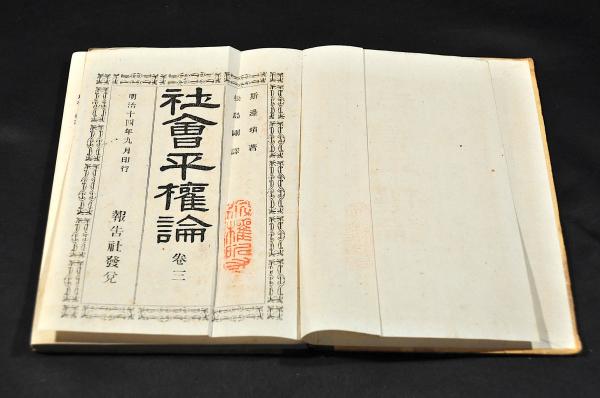 斯邊瑣著
松島剛譯
社會平權論
卷三
明治十四年九月印行
報告社發兌